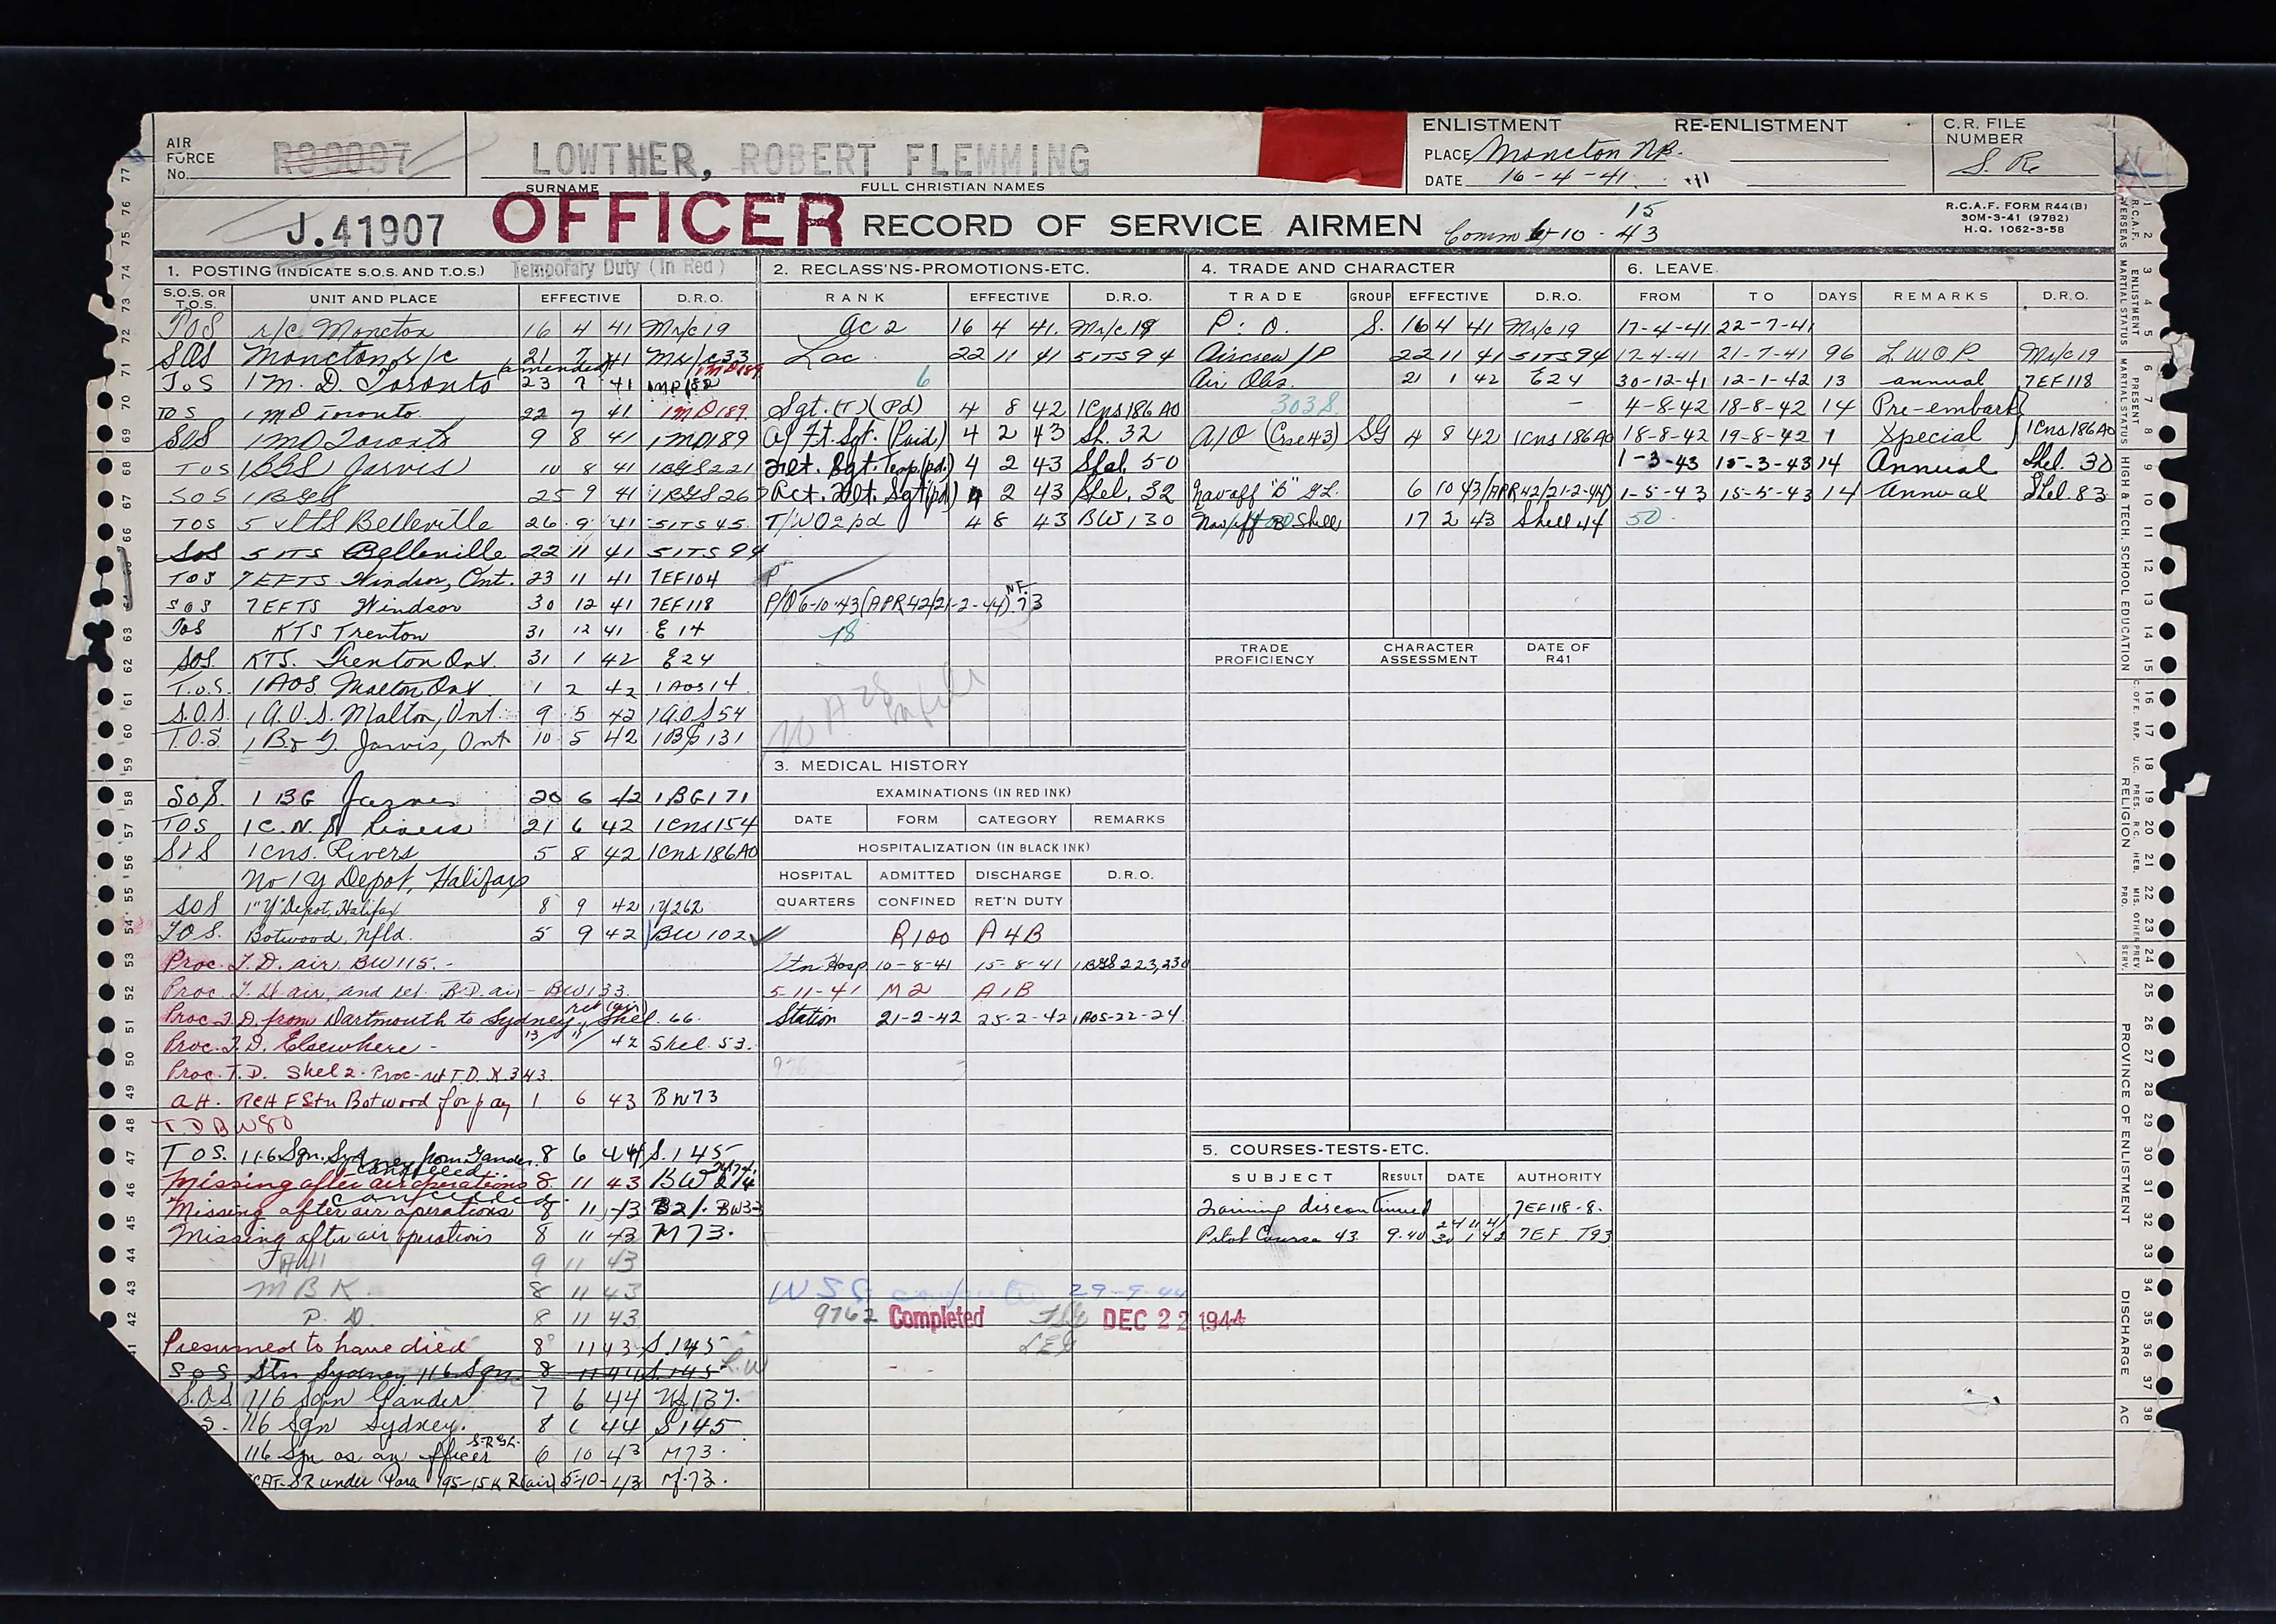 AIR FORCE No. R90097
LOWTHER, ROBERT FLEMMING
SURNAME FULL CHRISTIAN NAMES
ENLISTMENT RE-ENLISTMENT
PLACE Moncton NB.
DATE 16-4-41
C.R. FILE NUMBER
J.41907 OFFICER RECORD OF SERVICE AIRMEN
15
Comm 6-10-43
R.C.A.F. FORM R44(B)
30M-3-41 (9782)
H.Q. 1062-3-58
1. POSTING (INDICATE S.O.S. AND T.O.S.) Temporary Duty (In Red)
S.O.S. OR T.O.S. UNIT AND PLACE EFFECTIVE D.R.O.
TOS r/c Moncton 16 4 41 Mr/c 19
SOS Moncton r/c 21 7 41 Mr/c 33
amended 1MD189
ToS 1 M. D. Toronto 23 7 41
TOS 1 MD Toronto 22 7 41 1MD189
SOS 1 MD Toronto 9 8 41 1MD189
TOS 1 BGS Jarvis 10 8 41 1BGS221
SOS 1 BGS 25 9 41 1BGS26
TOS 5 ITS Belleville 26 9 41 5ITS45
SoS 5 ITS Belleville 22 11 41 5ITS94
TOS 7 EFTS Windsor, Ont. 23 11 41 7EF104
SOS 7EFTS Windsor 30 12 41 7EF118
ToS KTS Trenton 31 12 41 E14
SOS. KTS. Trenton Ont. 31 1 42 E24
T.O.S. 1AOS Malton Ont 1 2 42 1AOS14
S.O.S. 1 A.O.S. Malton, Ont. 9 5 42 1AOS54
T.O.S. 1 B & G. Jarvis, Ont 10 5 42 131
SOS. 1 BG Jarvis 20 6 42 1BG171
TOS 1 C.N.S Rivers 21 6 42 1Cns154
SOS 1 Cns. Rivers 5 8 42 1Cns186AO
No 1 Y Depot, Halifax
SOS 1 "Y" Depot, Halifax 8 9 42 1Y262
TOS. Botwood, Nfld. 5 9 42 BW102
Proc. T.D. air. BW115.-
Proc. T.D air, and ret. air - BW133.
Proc T.D. from Dartmouth to Sydney, ret (air) Shel. 66.
Proc. T.D. Elsewhere - 13/11/42 Shel 53.
Proc. T.D. Shel 2. Proc-ret T.D. X 343.
Botwood for pay 1 6 43 BW73
T.D BW80
TOS. 116 Sqn. Sydney from Gander 8 6 44 S.145
cancelled
Missing after air operations 8 11 43 BW
cancelled
Missing after air operations 8 11 43
Missing after air operations 8 11 43 M73.
9 11 43
M B K 8 11 43
P. D. 8 11 43
Presumed to have died 8 11 43 S.145
SOS Stn Sydney 116 Sqn 8 11 44 S.145
S.OS 116 Sqn Gander 7 6 44
116 Sqn Sydney. 8 6 44 S145
116 Sqn as an officer 6 10 43 M73.
SR under Para 195-15 K R(air) 5-10-43 M.73.
2. RECLASS'NS-PROMOTIONS-ETC.
RANK EFFECTIVE D.R.O.
ac 2 16 4 41. Mr/c 19
Lac 22 11 41 5ITS94
6
Sgt. (T) (Pd) 4 8 42 1Cns186AO
a/ Ft. Sgt. (Paid) 4 2 43 Sh. 32
Flt. Sgt. Temp (pd.) 4 2 43 Shel. 50
Act. Flt. Sgt (pd) 4 2 43 Shel. 32
T/WO2 pd 4 8 43 BW130
P/O 6-10-43 (APR42/21-2-44) 73
18
3. MEDICAL HISTORY
EXAMINATIONS (IN RED INK)
DATE FORM CATEGORY REMARKS
HOSPITALIZATION (IN BLACK INK)
HOSPITAL ADMITTED DISCHARGE D.R.O.
QUARTERS CONFINED RET'N DUTY
R100 A4B
Stn Hosp 10-8-41 15-8-41 1BGS 223,230
5-11-41 M2 A1B
Station 21-2-42 25-2-42 1AOS-22-24
9762 Completed DEC 22 1944
4. TRADE AND CHARACTER
TRADE GROUP EFFECTIVE D.R.O.
P. O. S. 16 4 41 Mr/c 19
Aircrew /P 22 11 41 5ITS94
Air Obs. 21 1 42 E24
303 S.
A/O (Crse 43) SG 4 8 42 1Cns186AO
Nav off "B" 6 10 43 (APR42/21-2-44)
Nav/off B Shell 17 2 43 Shell 44
TRADE PROFICIENCY CHARACTER ASSESSMENT DATE OF R41
5. COURSES-TESTS-ETC.
SUBJECT RESULT DATE AUTHORITY
Training discontinued 7EF118-8.
Pilot Course 43 7EF
6. LEAVE
FROM TO DAYS REMARKS D.R.O.
17-4-41 22-7-41
17-4-41 21-7-41 96 L.W.O.P. Mr/c 19
30-12-41 12-1-42 13 annual 7EF118
4-8-42 18-8-42 14 Pre-embark
18-8-42 19-8-42 1 Special 1Cns186AO
1-3-43 15-3-43 14 Annual Shel. 30
1-5-43 15-5-43 14 Annual Shel. 83
50
R.C.A.F. OVERSEAS
ENLISTMENT MARTIAL STATUS
PRESENT MARTIAL STATUS
HIGH & TECH. SCHOOL EDUCATION
RELIGION
PROVINCE OF ENLISTMENT
DISCHARGE
AC